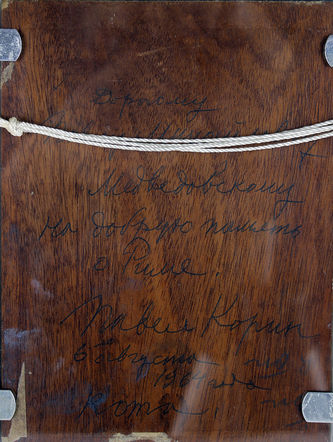 Дорогому
Медведовскому
на добрую память
о Риме.
Павел Корин
5 августа
196 года
Ялта.